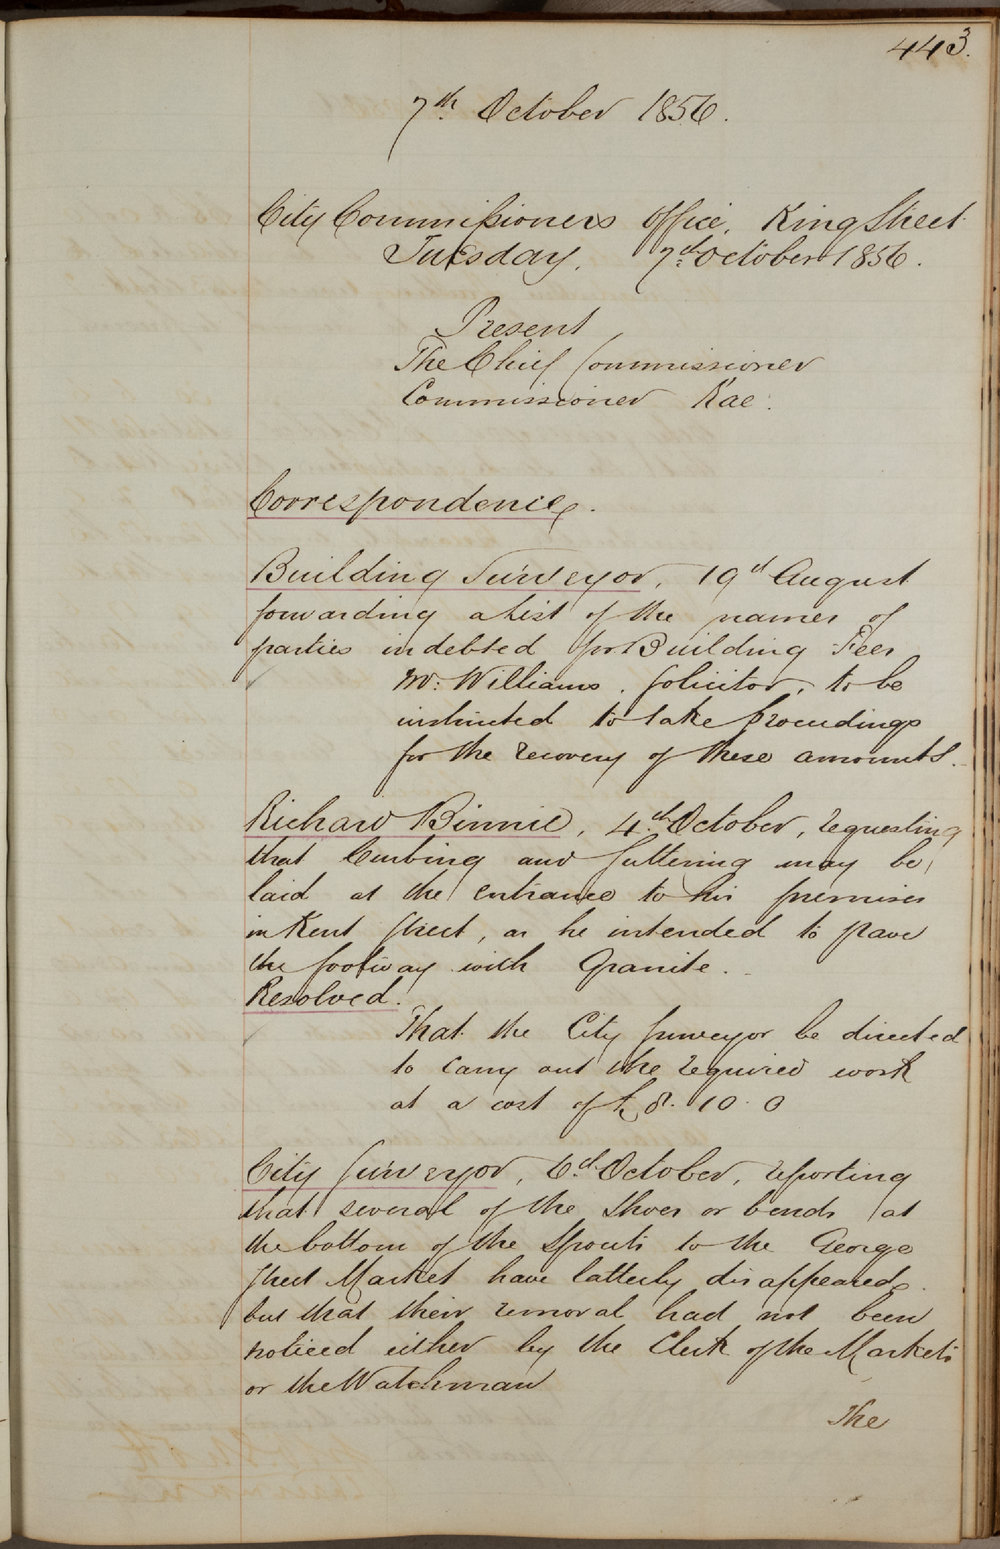 443.
7th October 1856.
City Commissioners Office, King Street
Tuesday, 7th October 1856.
Present
The Chief Commissioner
Commissioner Rae.
Correspondence.
Building Surveyor, 19th August
forwarding a List of the names of
parties indebted for Building Fees
Mr. Williams, Solicitor, to be
instructed to take proceedings
for the recovery of these amounts.
Richard Binnie, 4th October, requesting
that Curbing and Guttering may be
laid at the entrance to his premises
in Kent Street, as he intended to pave
the footway with Granite.
Resolved.
That the City Surveyor be directed
to carry out the required work
at a cost of £8.10.0
City Surveyor, 6th October, reporting
that several of the shoes or bends at
the bottom of the Spouts to the George
Street Market have latterly disappeared.
but that their removal had not been
noticed either by the Clerk of the Markets
or the Watchman
The